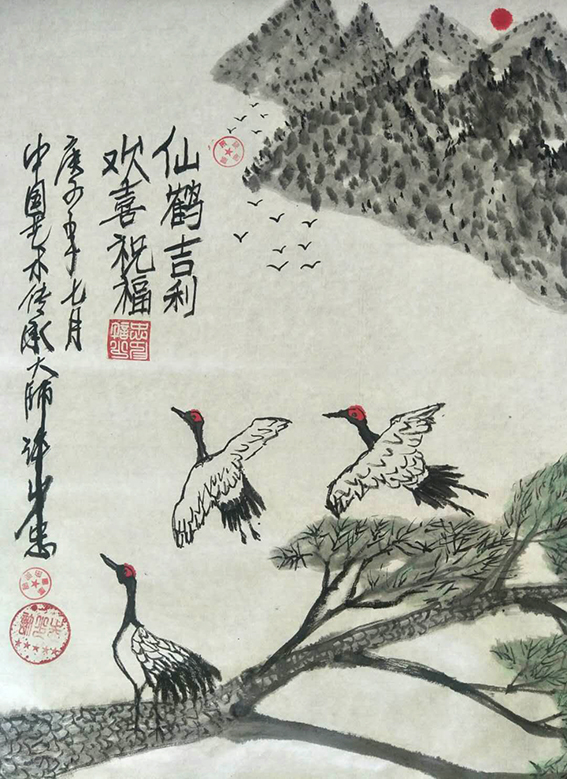 仙鹤吉利
欢喜祝福
庚子年七月
中国艺术传承大师许山忠